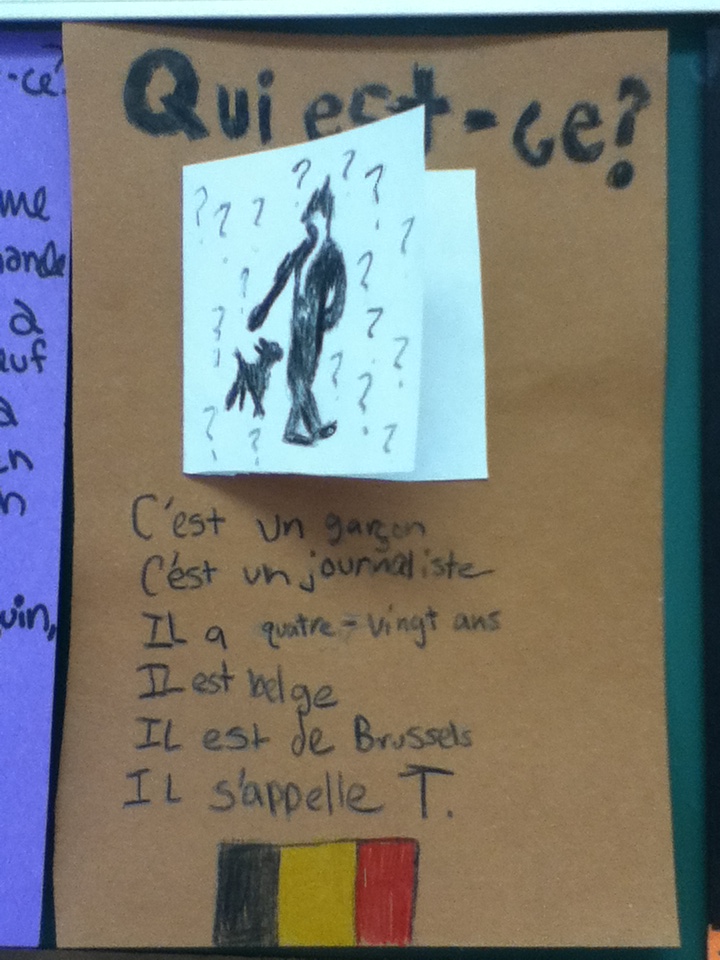 -ce?
me
ande
a
euf
a
n
n
uin,
Qui est-ce?
? ? ? ? ? ? ? ? ? ? ? ? ? ? ? ? ? ?
C'est un garçon
C'est un journaliste
IL a quatre-vingt ans
IL est belge
IL est de Brussels
IL s'appelle T.